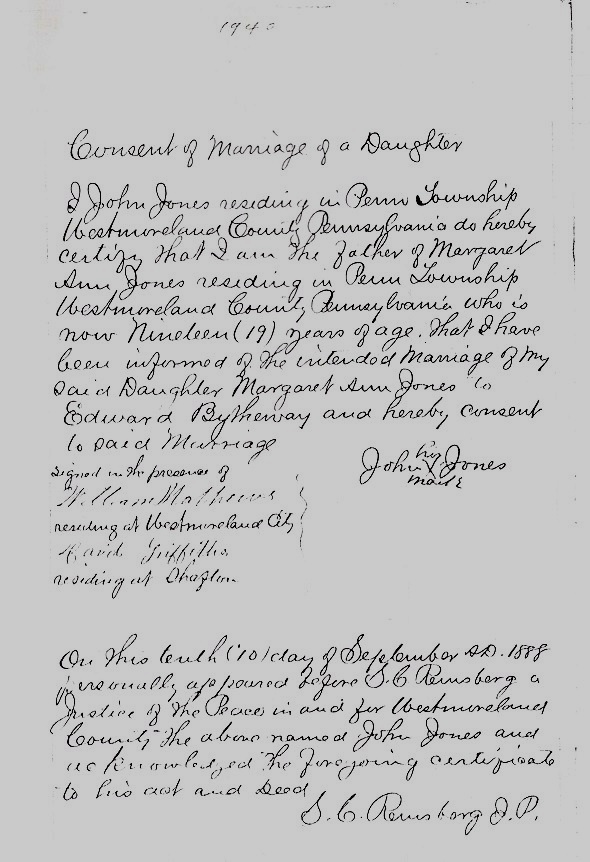 Consent of Marriage of a Daughter
I John Jones residing in Penn Township
Westmoreland County Pennsylvania do hereby
certify that I am the father of Margaret
Ann Jones residing in Penn Township
Westmoreland County Pennsylvania who is
now Nineteen (19) years of age. That I have
been informed of the intended Marriage of my
said Daughter Margaret Ann Jones to
Edward Bytheway and hereby consent
to said Marriage
John his X Jones
mark
Signed in the presence of
William Mathews
residing at Westmoreland City
David Griffiths
residing at
On this tenth (10) day of September A.D. 1888
personally appeared before S. C. Remsberg a
Justice of the Peace in and for Westmoreland
County the above named John Jones and
acknowledged the foregoing certificate
to his act and Deed
S. C. Remsberg J. P.